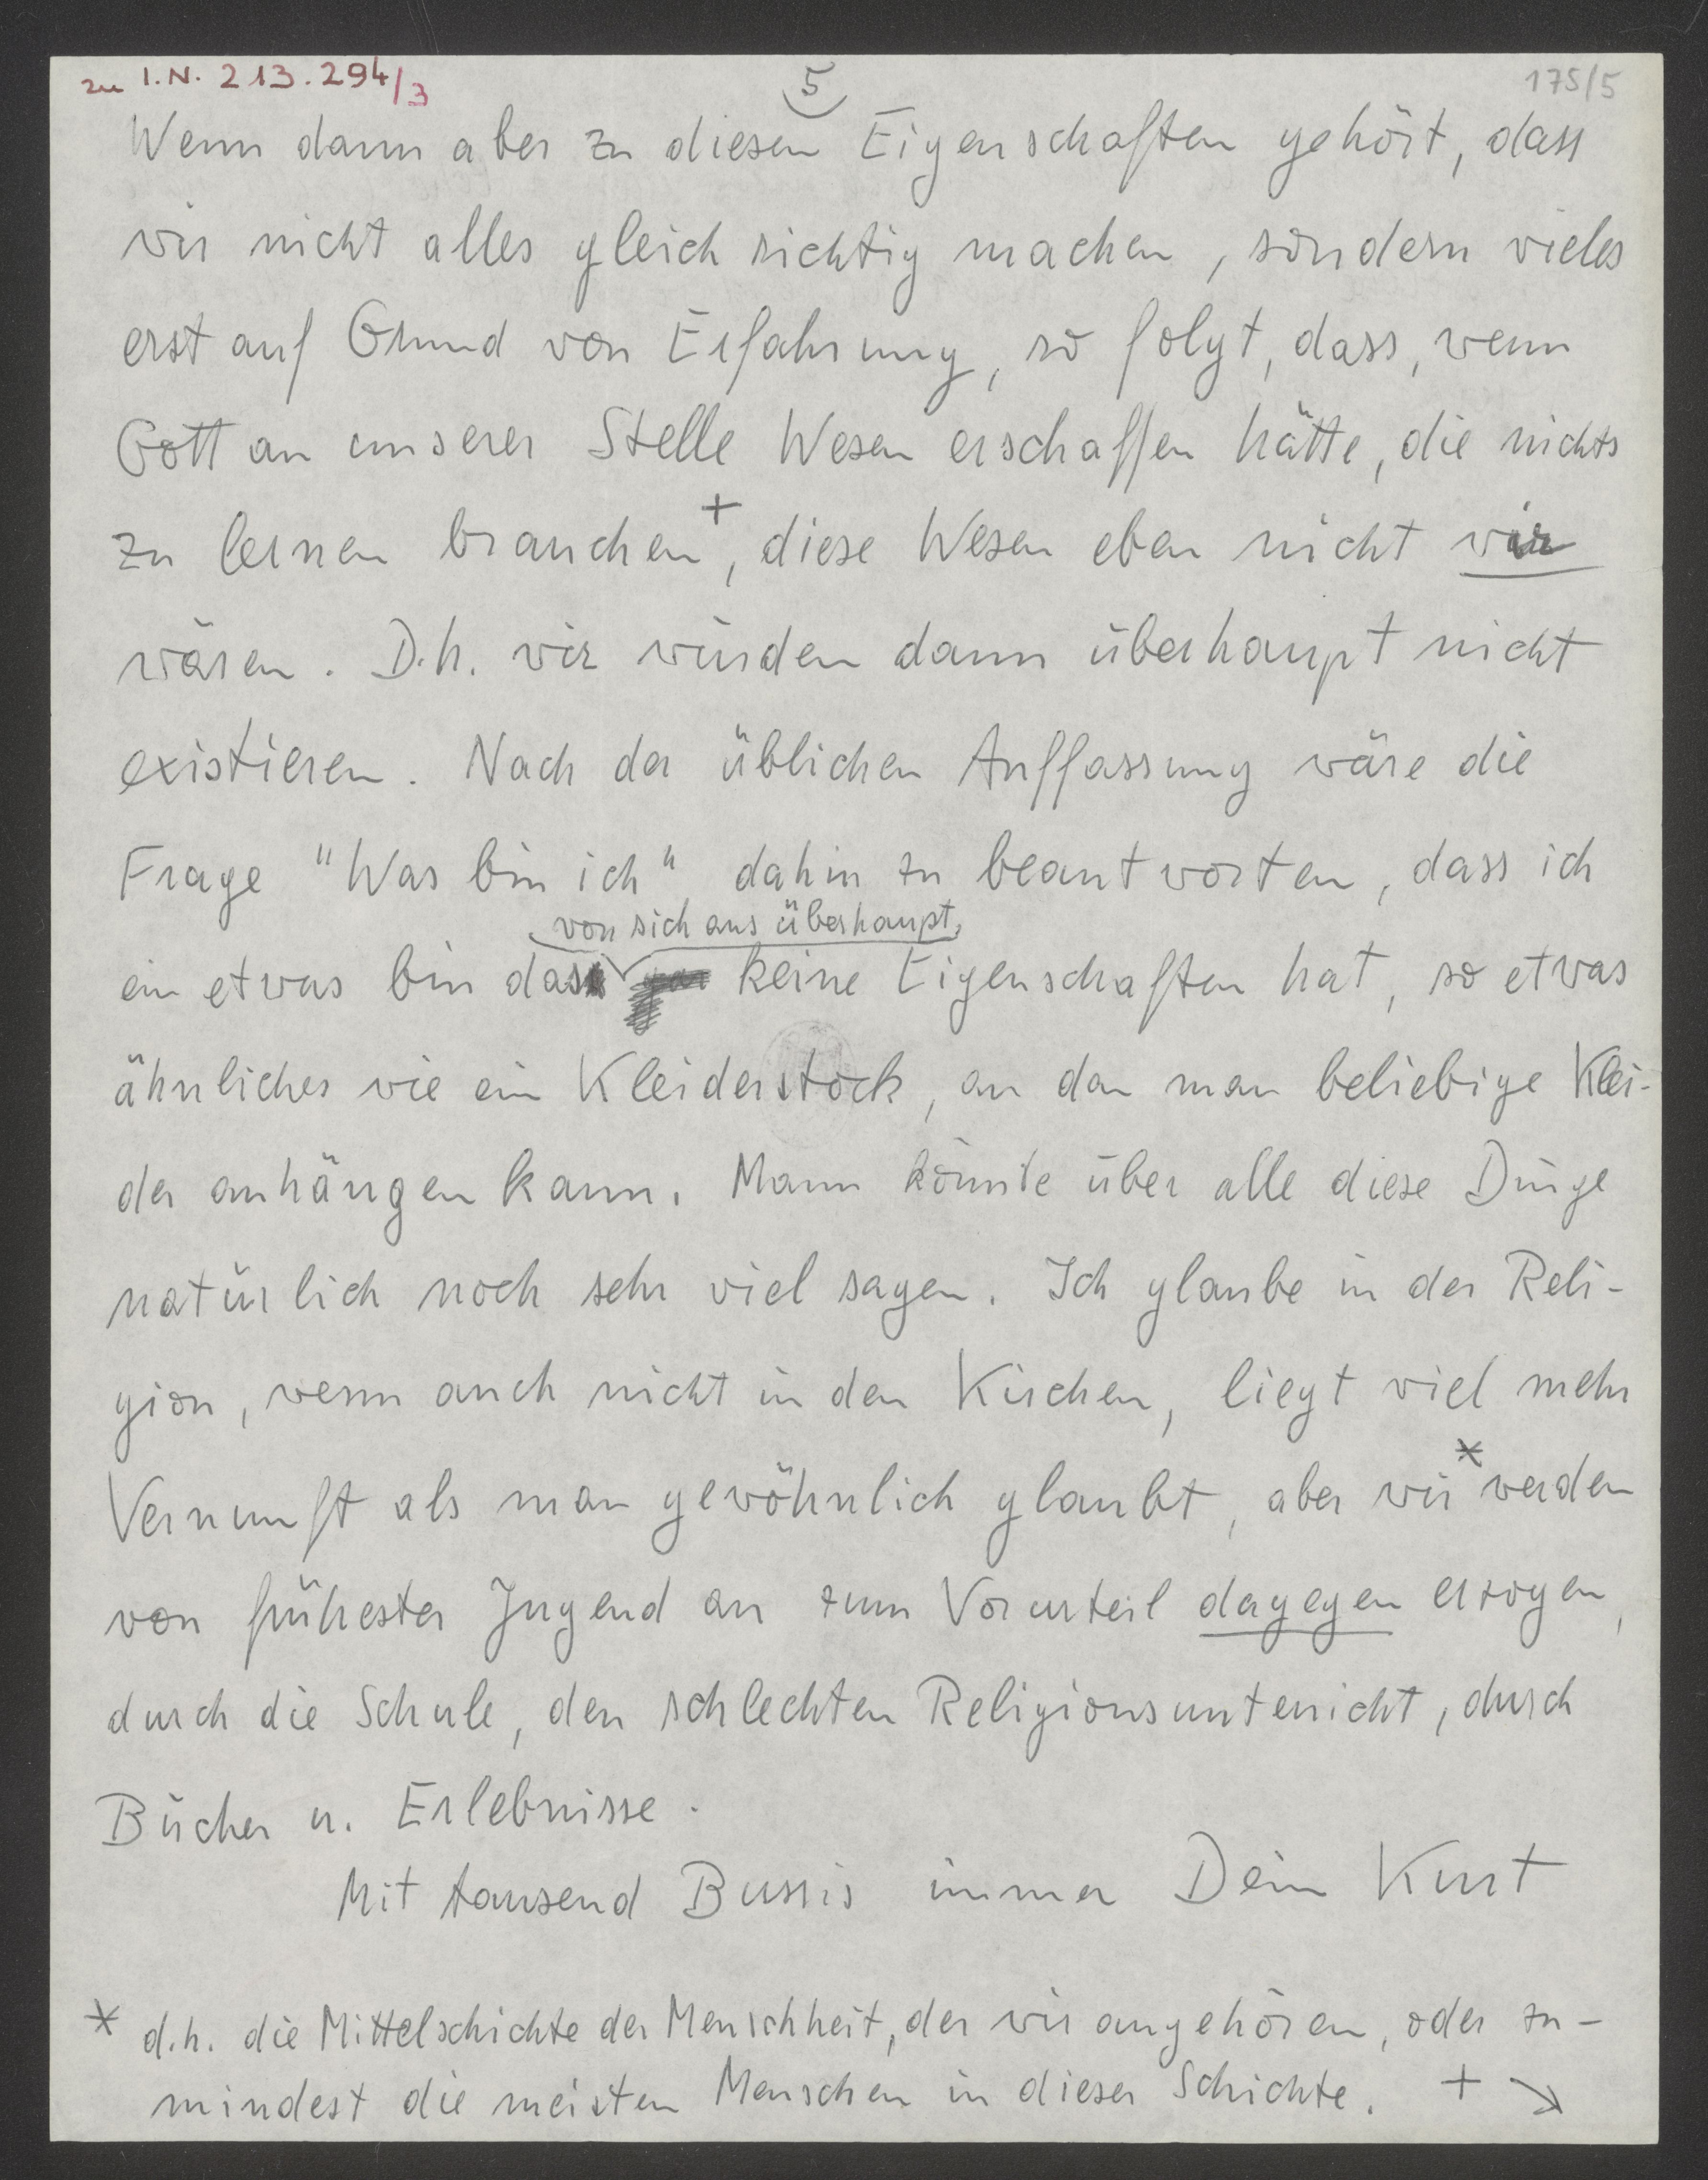 zu I.N. 213.294/3
5
175/5
Wenn dann aber zu diesen Eigenschaften gehört, dass
wir nicht alles gleich richtig machen, sondern vieles
erst auf Grund von Erfahrung, so folgt, dass, wenn
Gott an unserer Stelle Wesen erschaffen hätte, die nichts
zu lernen brauchen+, diese Wesen eben nicht wir
wären. D.h. wir würden dann überhaupt nicht
existieren. Nach der üblichen Auffassung wäre die
Frage "Was bin ich" dahin zu beantworten, dass ich
von sich aus überhaupt
ein etwas bin das gar keine Eigenschaften hat, so etwas
ähnliches wie ein Kleiderstock, an den man beliebige Klei-
der anhängen kann. Mann könnte über alle diese Dinge
natürlich noch sehr viel sagen. Ich glaube in der Reli-
gion, wenn auch nicht in den Kirchen, liegt viel mehr
Vernunft als man gewöhnlich glaubt, aber wir* werden
von frühester Jugend an zum Vorurteil dagegen erzogen,
durch die Schule, den schlechten Religionsunterricht, durch
Bücher u. Erlebnisse.
Mit tausend Bussis immer Dein Kurt
* d.h. die Mittelschichte der Menschheit, der wir angehören, oder zu-
mindest die meisten Menschen in dieser Schichte. + ↘